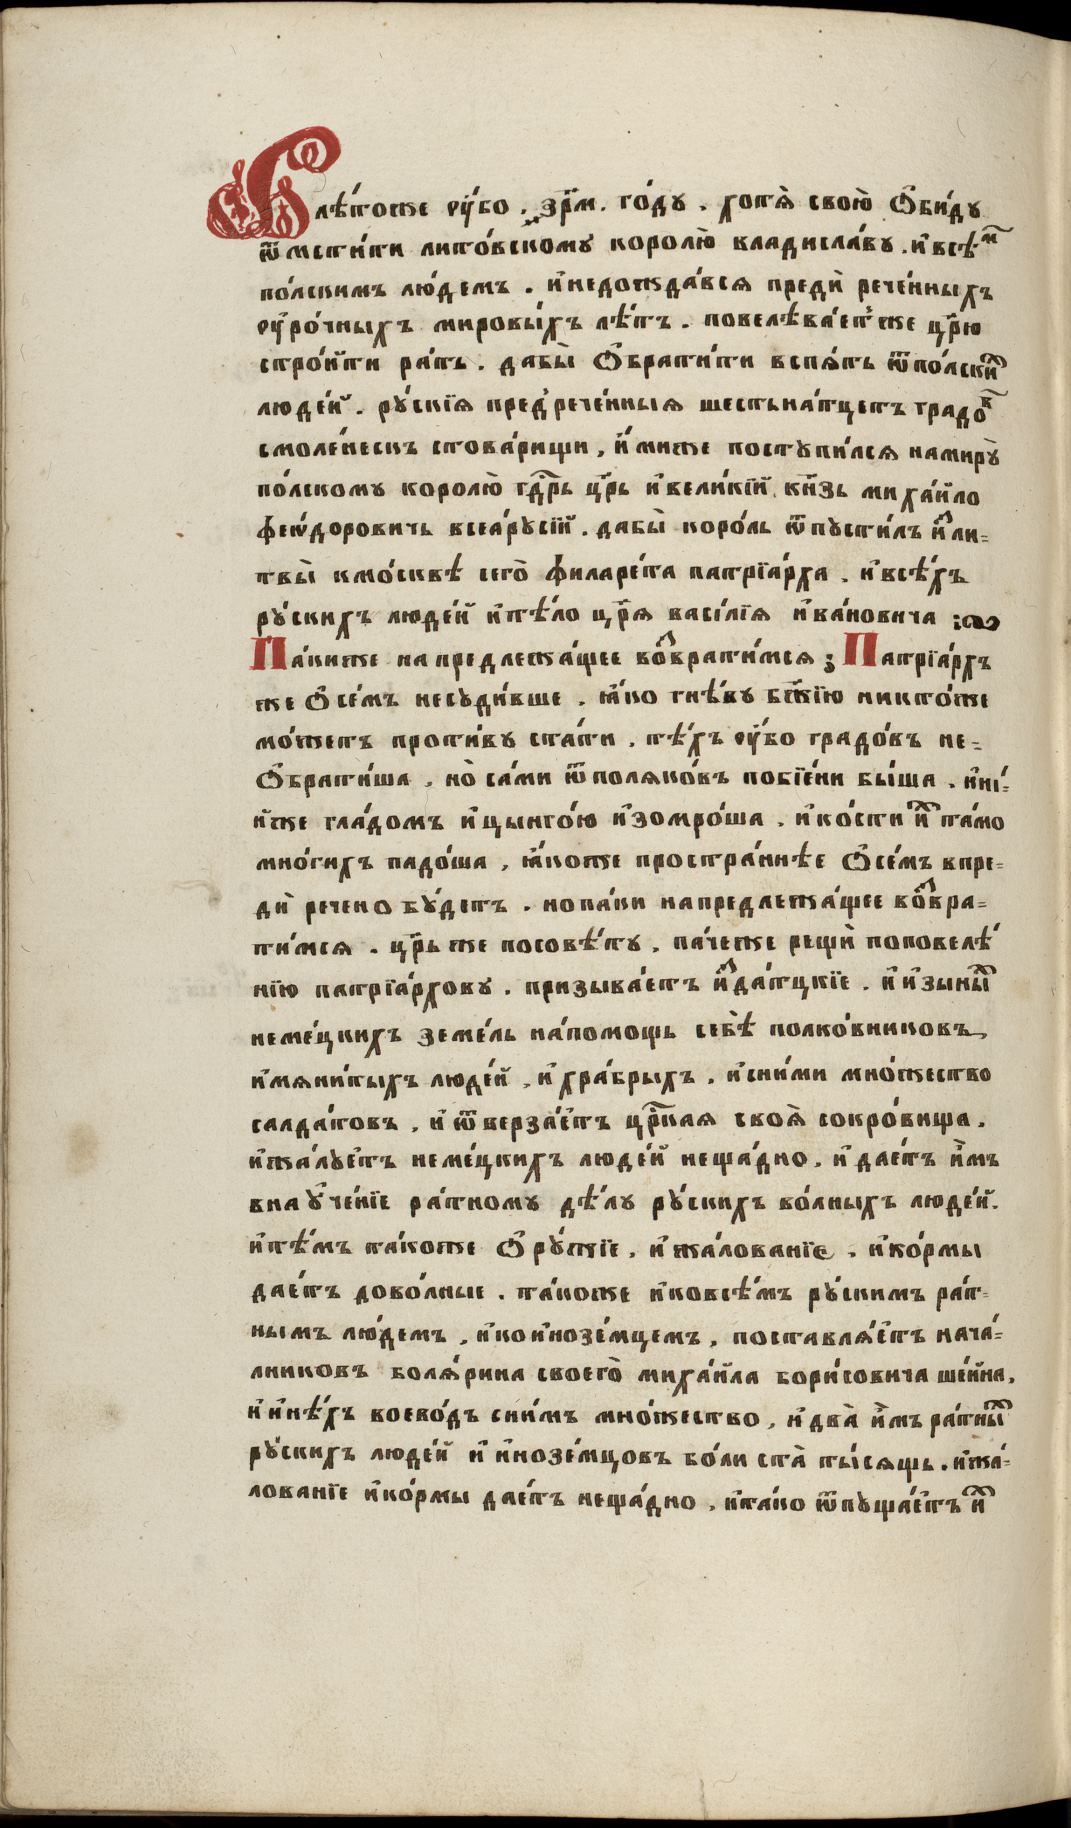 Влѣ́тоже ᲂу҆́бо . ҂зр҃м . го́ду . хотѧ̀ свою̀ ѻ҆би́ду
ѿмсти́ти лито́вскому королю̀ владисла́ву . и҆ всѣ́ⷨ
по́лскимъ лю́демъ . и҆ недожда́всѧ преди́ рече́нныхъ
ᲂу҆ро́чныхъ мировы́хъ лѣ́тъ . повелѣва́етъ же цр҃ю
стро́ити ра́ть . дабы̀ ѻ҆брати́ти вспѧ́ть ѿпо́лскиⷯ
люде́й . ру́скїѧ пред̾рече́нныѧ шестьна́тцеть градо́ⷡ
смоле́нескъ стова́рищи , и҆́миже поступи́лсѧ намиру̀
по́лскому королю̀ гдⷭ҇рь цр҃ь и҆ вели́кїй кн҃зь миха́йло
фео́доровичь всеару́сїй . дабы̀ коро́ль ѿпусти́лъ и҆ⷥ ли=
твы̀ кмо́сквѣ сего̀ филаре́та патрїа́рха , и҆ всѣ́хъ
ру́скихъ люде́й и҆ тѣ́ло цр҃ѧ васи́лїѧ и҆ва́новича :
Па́киже на предлежа́щее воⷥврати́мсѧ ; Патрїа́рхъ
же ѻ҆ се́мъ несуди́вше , ꙗ҆́ко гнѣ́ву бж҃їю никто́же
мо́жетъ проти́ву ста́ти . тѣ́хъ ᲂу҆́бо градо́въ не=
ѻ҆брати́ша , но̀ са́ми ѿполѧко́въ побїе́ни бы́ша , и҆ні́=
и҆же гла́домъ и҆ цынго́ю и҆зомро́ша . и҆ ко́сти и҆ⷯ та́мо
мно́гихъ падо́ша , ꙗ҆́коже простра́ннѣе ѻ҆ се́мъ впре=
дѝ речено бу́детъ . но па́ки напредлежа́щее воⷥвра=
ти́мсѧ . цр҃ь же посовѣ́ту , па́чеже рещѝ поповелѣ́
нїю патрїа́рхову . призыва́етъ и҆ⷥ да́тцкїе . и҆ и҆зыны́ⷯ
неме́цкихъ земе́ль на́помощь себѣ̀ полко́вниковъ
и҆мѧни́тыхъ люде́й , и҆ хра́брыхъ , и҆ сни́ми мно́жество
салда́товъ , и҆ ѿверза́етъ црⷭ҇каѧ своѧ̀ сокро́вища ,
и҆ жа́луетъ неме́цкихъ люде́й неща́дно , и҆ дае́тъ и҆̀мъ
вна ᲂу҆че́нїе ра́тному дѣ́лу ру́скихъ во́лныхъ люде́й .
и҆ тѣ́мъ та́коже ѻ҆ру́жїе , и҆ жа́лованїе , и҆ ко́рмы
дае́тъ дово́лные . та́коже и҆ ковсѣ́мъ ру́скимъ ра́т=
нымъ лю́демъ , и҆ ко и҆нозе́мцемъ , поставлѧ́етъ нача́=
лниковъ болѧ́рина своего̀ миха́йла бори́совича ше́йна ,
и҆ и҆нѣ́хъ воево́дъ сни́мъ мно́жество , и҆ два̀ и҆̀мъ ра́тныⷯ
ру́скихъ люде́й и҆ и҆нозе́мцовъ бо́ли ста̀ ты́сѧщь . и҆ жа́=
лованїе и҆ ко́рмы дае́тъ неща́дно , и҆ та́ко ѿпуща́етъ и҆ⷯ